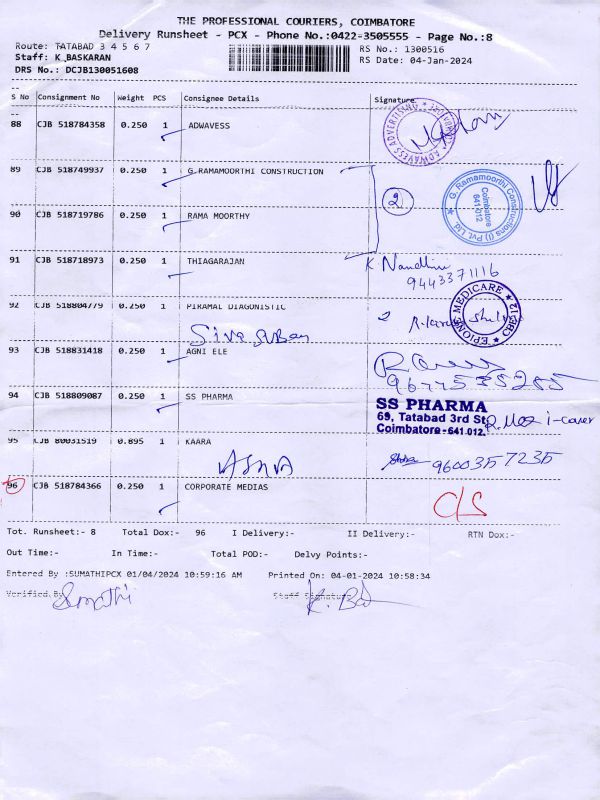 THE PROFESSIONAL COURIERS, COIMBATORE
Delivery Runsheet - PCX - Phone No.:0422-3505555 - Page No.:8
Route: TATABAD 3 4 5 6 7
RS No.: 1300516
Staff: K BASKARAN
RS Date: 04-Jan-2024
DRS No.: DCJB130051608
S No Consignment No Weight PCS Consignee Details Signature
88 CJB 518784358 0.250 1 ADWAVESS
89 CJB 518749937 0.250 1 G.RAMAMOORTHI CONSTRUCTION
G. Ramamoorthi Constructions (I) Pvt. Ltd.
Coimbatore
641 012
2
90 CJB 518719786 0.250 1 RAMA MOORTHY
91 CJB 518718973 0.250 1 THIAGARAJAN
K Nandhini
9443371116
92 CJB 518804779 0.250 1 PIRAMAL DIAGONISTIC
EPIONE MEDICARE
CBE-12
2
93 CJB 518831418 0.250 1 AGNI ELE
94 CJB 518809087 0.250 1 SS PHARMA
SS PHARMA
69, Tatabad 3rd St
Coimbatore-641.012.
95 CJB 80031519 0.895 1 KAARA
9600357235
96 CJB 518784366 0.250 1 CORPORATE MEDIAS
C/S
Tot. Runsheet:- 8 Total Dox:- 96 I Delivery:- II Delivery:- RTN Dox:-
Out Time:- In Time:- Total POD:- Delvy Points:-
Entered By :SUMATHIPCX 01/04/2024 10:59:16 AM Printed On: 04-01-2024 10:58:34
Verified By Sumathi
Staff Signature